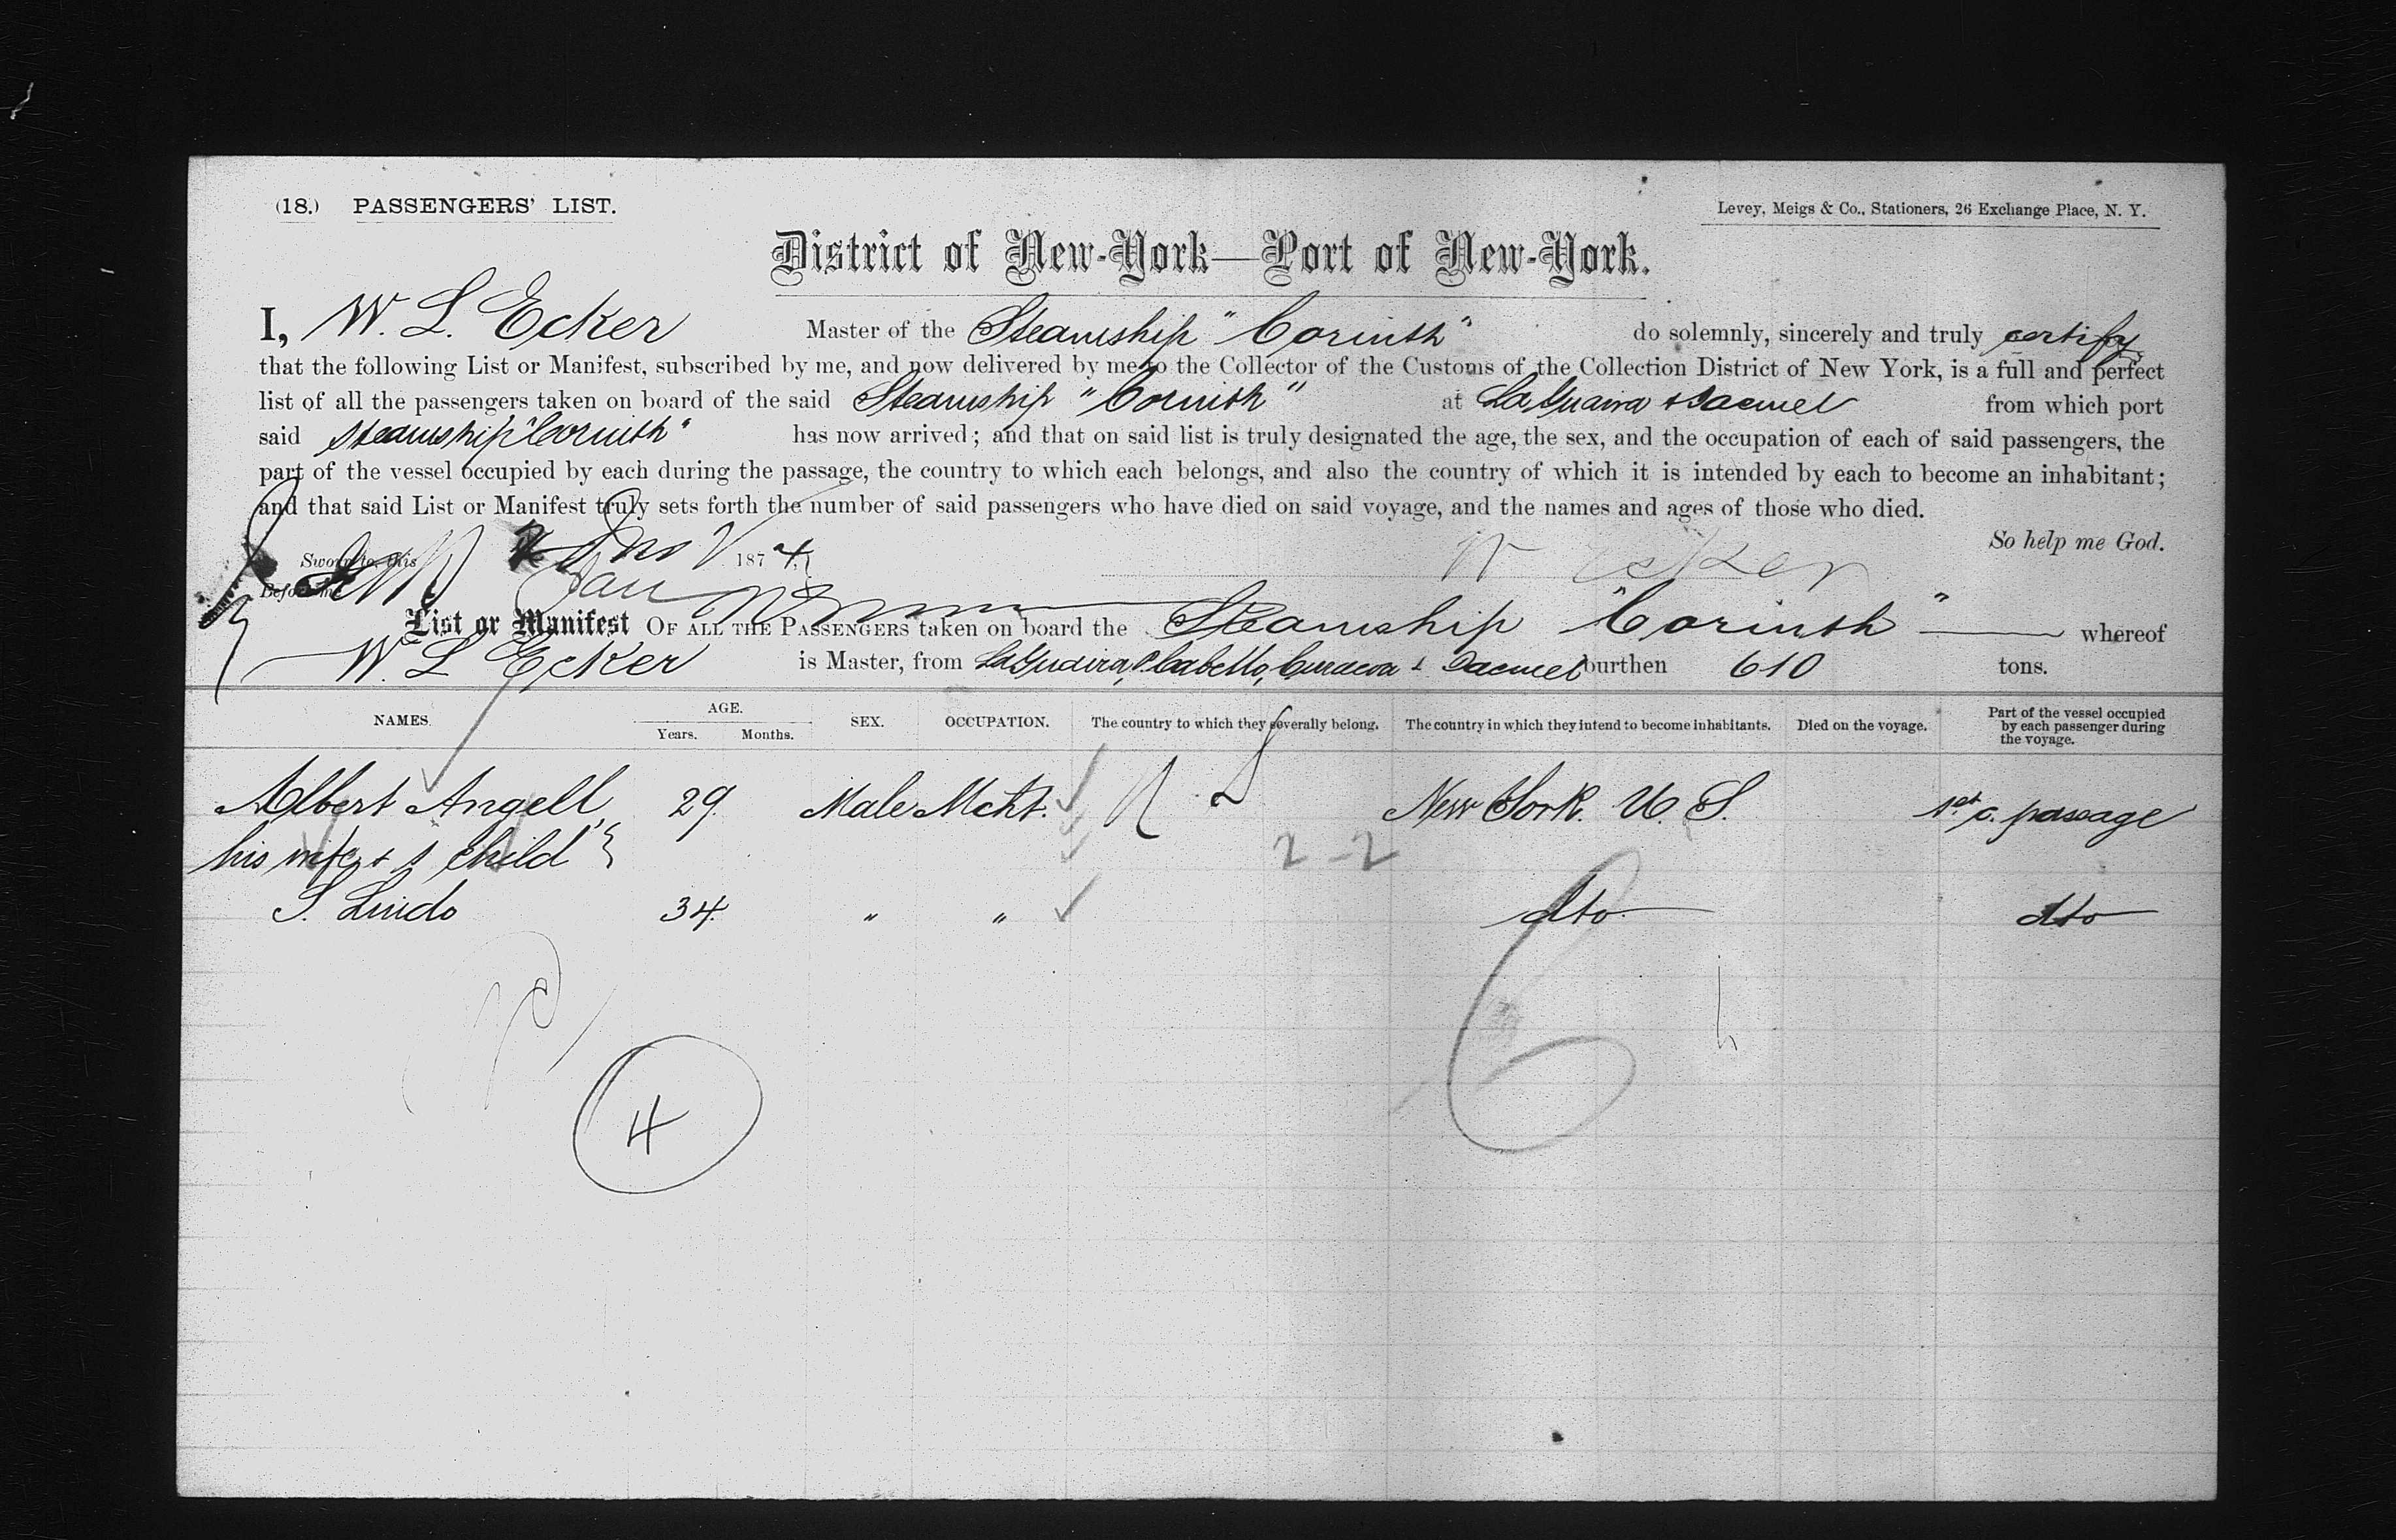 (18.) PASSENGERS' LIST.
Levey, Meigs & Co., Stationers, 26 Exchange Place, N. Y.
District of New-York—Port of New-York.
I, W. L. Ecker Master of the Steamship "Corinth" do solemnly, sincerely and truly certify
that the following List or Manifest, subscribed by me, and now delivered by me to the Collector of the Customs of the Collection District of New York, is a full and perfect
list of all the passengers taken on board of the said Steamship "Corinth" at LaGuaira & Jacmel from which port
said Steamship "Corinth" has now arrived; and that on said list is truly designated the age, the sex, and the occupation of each of said passengers, the
part of the vessel occupied by each during the passage, the country to which each belongs, and also the country of which it is intended by each to become an inhabitant;
and that said List or Manifest truly sets forth the number of said passengers who have died on said voyage, and the names and ages of those who died.
So help me God.
Sworn to, this 1874
Jan W Ecker
Before me
List or Manifest OF ALL THE PASSENGERS taken on board the Steamship "Corinth" whereof
W L Ecker is Master, from LaGuaira, P. Cabello, Curacoa & Jacmel burthen 610 tons.
NAMES. AGE. Years. Months. SEX. OCCUPATION. The country to which they severally belong. The country in which they intend to become inhabitants. Died on the voyage. Part of the vessel occupied by each passenger during the voyage.
Albert Angell, 29. Male Mcht. U S New York. U. S. 1st c. passage
his wife & 1 child 2-2
S. Lindo 34. " " dto dto
4
6